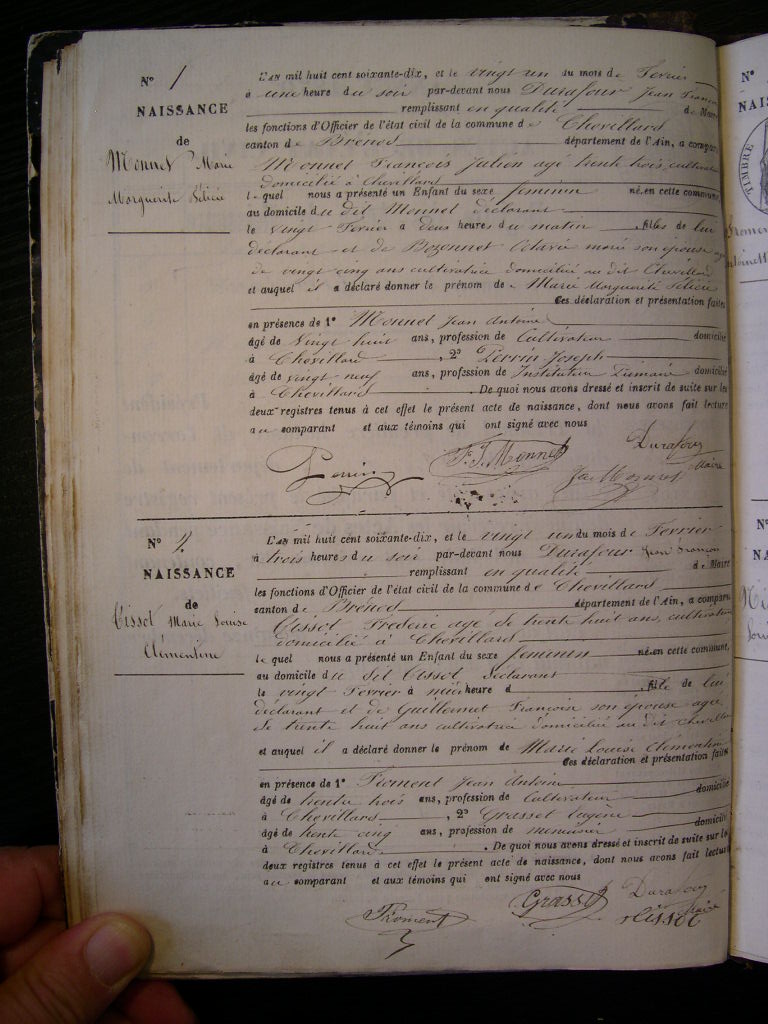 N° 1
NAISSANCE
de
Monnet Marie
Marguerite Félicie
L'AN mil huit cent soixante-dix, et le vingt un du mois de Fevrier
à une heure du soir par-devant nous Durafour Jean François
remplissant en qualité de Maire
les fonctions d'Officier de l'état civil de la commune de Chevillard
canton de Brénod département de l'Ain, a comparu
Monnet François Julien agé trente trois, cultivateur
domicilié à Chevillard
lequel nous a présenté un Enfant du sexe feminin né, en cette commune
au domicile du dit Monnet déclarant
le vingt Fevrier a deux heures du matin, fille de lui
déclarant et de Bozonnet Octavie mariée son épouse
de vingt cinq ans cultivatrice domiciliée au dit Chevillard
et auquel il a déclaré donner le prénom de Marie Marguerite Félicie
Ces déclaration et présentation faites
en présence de 1° Monnet Jean Antoine
âgé de vingt huit ans, profession de Cultivateur domicilié
à Chevillard, 2° Perrin Joseph
âgé de vingt neuf ans, profession de Instituteur Primaire domicilié
à Chevillard. De quoi nous avons dressé et inscrit de suite sur les
deux registres tenus à cet effet le présent acte de naissance, dont nous avons fait lecture
au comparant et aux témoins qui ont signé avec nous
Perrin F. J. Monnet Durafour
Jn Monnet Maire
N° 2
NAISSANCE
de
Tissot Marie Louise
Clémentine
L'AN mil huit cent soixante-dix, et le vingt un du mois de Fevrier
à trois heures du soir par-devant nous Durafour Jean François
remplissant en qualité de Maire
les fonctions d'Officier de l'état civil de la commune de Chevillard
canton de Brénod département de l'Ain, a comparu
Tissot Frédéric agé de trente huit ans, cultivateur
domicilié à Chevillard
lequel nous a présenté un Enfant du sexe feminin né, en cette commune,
au domicile du dit Tissot, déclarant
le vingt Fevrier à midi heure d, fille de lui
déclarant et de Guillermet Françoise son épouse agée
de trente huit ans cultivatrice domiciliée au dit Chevillard
et auquel il a déclaré donner le prénom de Marie Louise Clémentine
Ces déclaration et présentation faites
en présence de 1° Froment Jean Antoine
âgé de trente trois ans, profession de Cultivateur domicilié
à Chevillard, 2° Grasset Eugène
âgé de trente cinq ans, profession de menuisier domicilié
à Chevillard. De quoi nous avons dressé et inscrit de suite sur les
deux registres tenus à cet effet le présent acte de naissance, dont nous avons fait lecture
au comparant et aux témoins qui ont signé avec nous
Froment Grasset Durafour
Tissot Maire
N°
NAI
TIMBRE
N°
NA